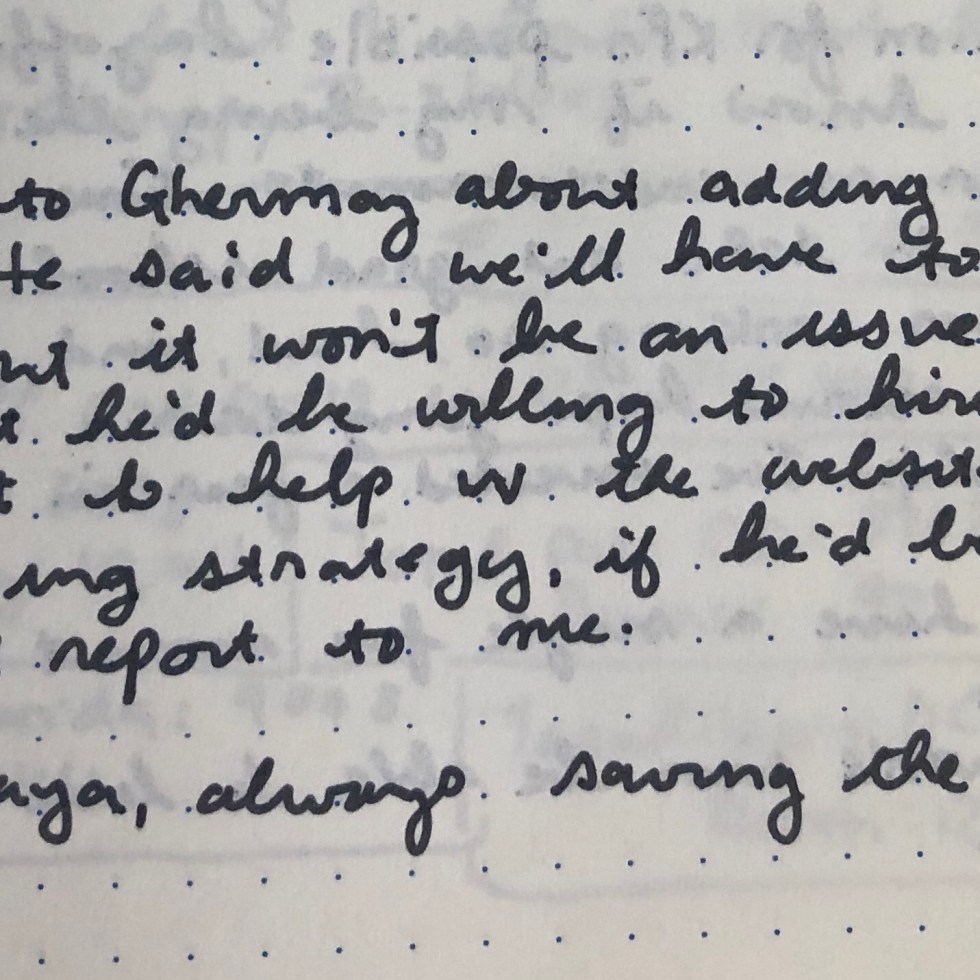 to Ghermay about adding
He said we'll have to
it won't be an issue
he'd be willing to
to help w the
ing strategy, if he'd
report to me.
always saving the